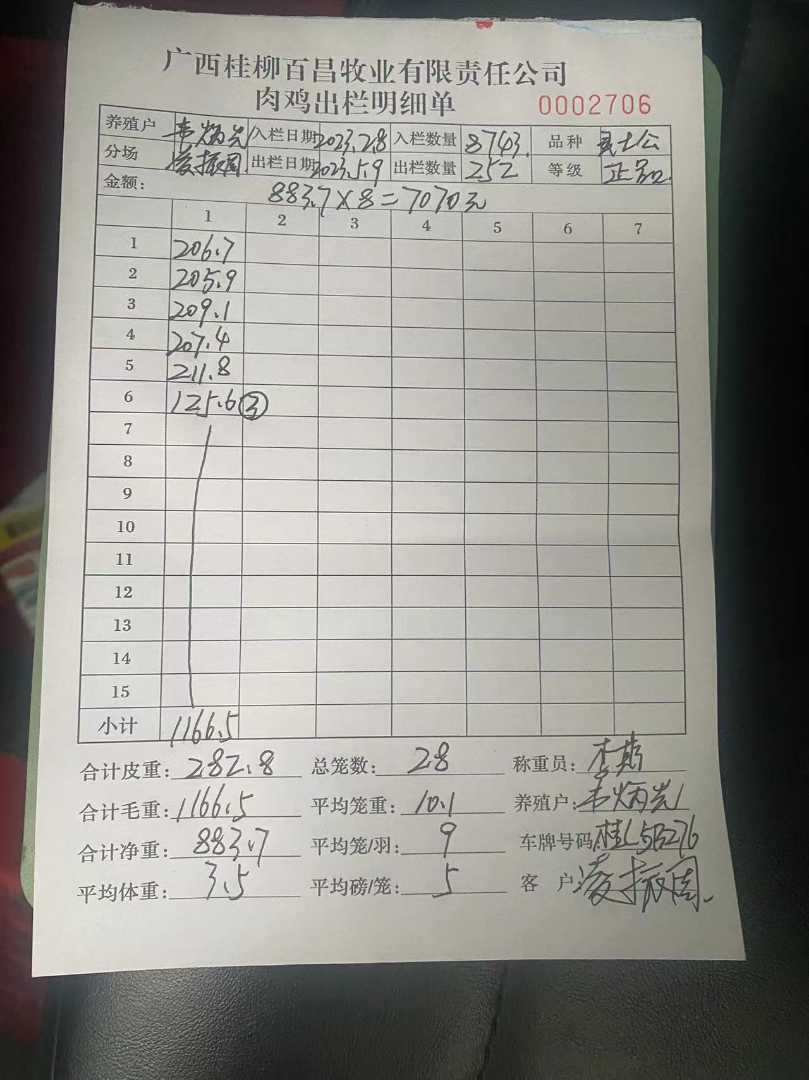 广西桂柳百昌牧业有限责任公司
肉鸡出栏明细单 0002706
养殖户 韦炳光 入栏日期 2023.2.8 入栏数量 8743. 品种 土公
分场 凌振周 出栏日期 2023.5.9 出栏数量 252 等级 正品
金额: 883.7×8=7070元
1 2 3 4 5 6 7
1 206.7
2 205.9
3 209.1
4 207.4
5 211.8
6 125.6 ③
7
8
9
10
11
12
13
14
15
小计 1166.5
合计皮重: 282.8 总笼数: 28 称重员: 李
合计毛重: 1166.5 平均笼重: 10.1 养殖户: 韦炳光
合计净重: 883.7 平均笼/羽: 9 车牌号码: 桂L5B276
平均体重: 3.5 平均磅/笼: 5 客 户: 凌振周